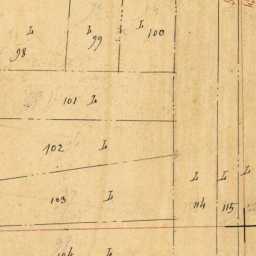 L L L 100
98 99
101 L
102 L
L L L
103 L 114 115
104 L